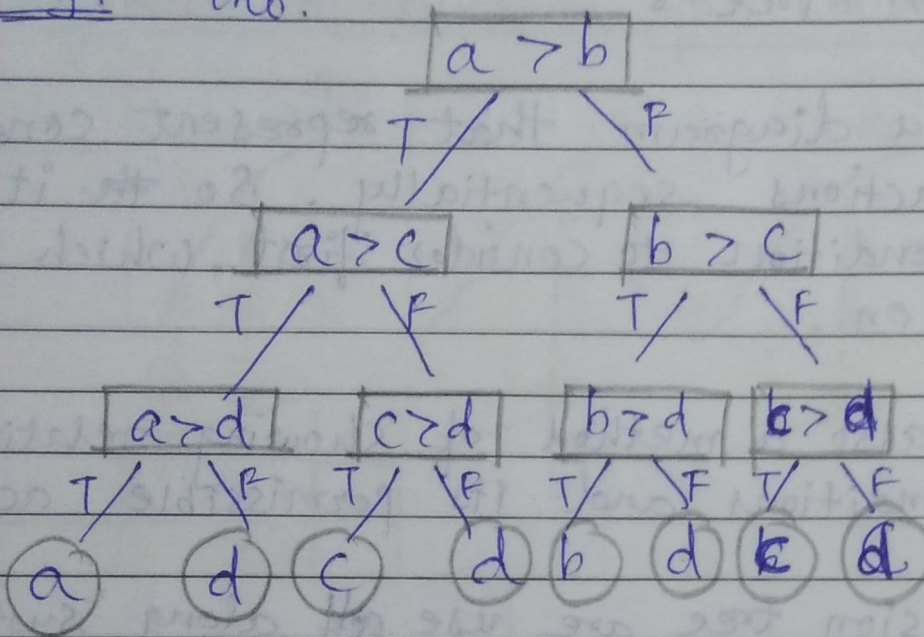 a > b
T F
a > c b > c
T F T F
a > d c > d b > d c > d
T F T F T F T F
a d c d b d c d